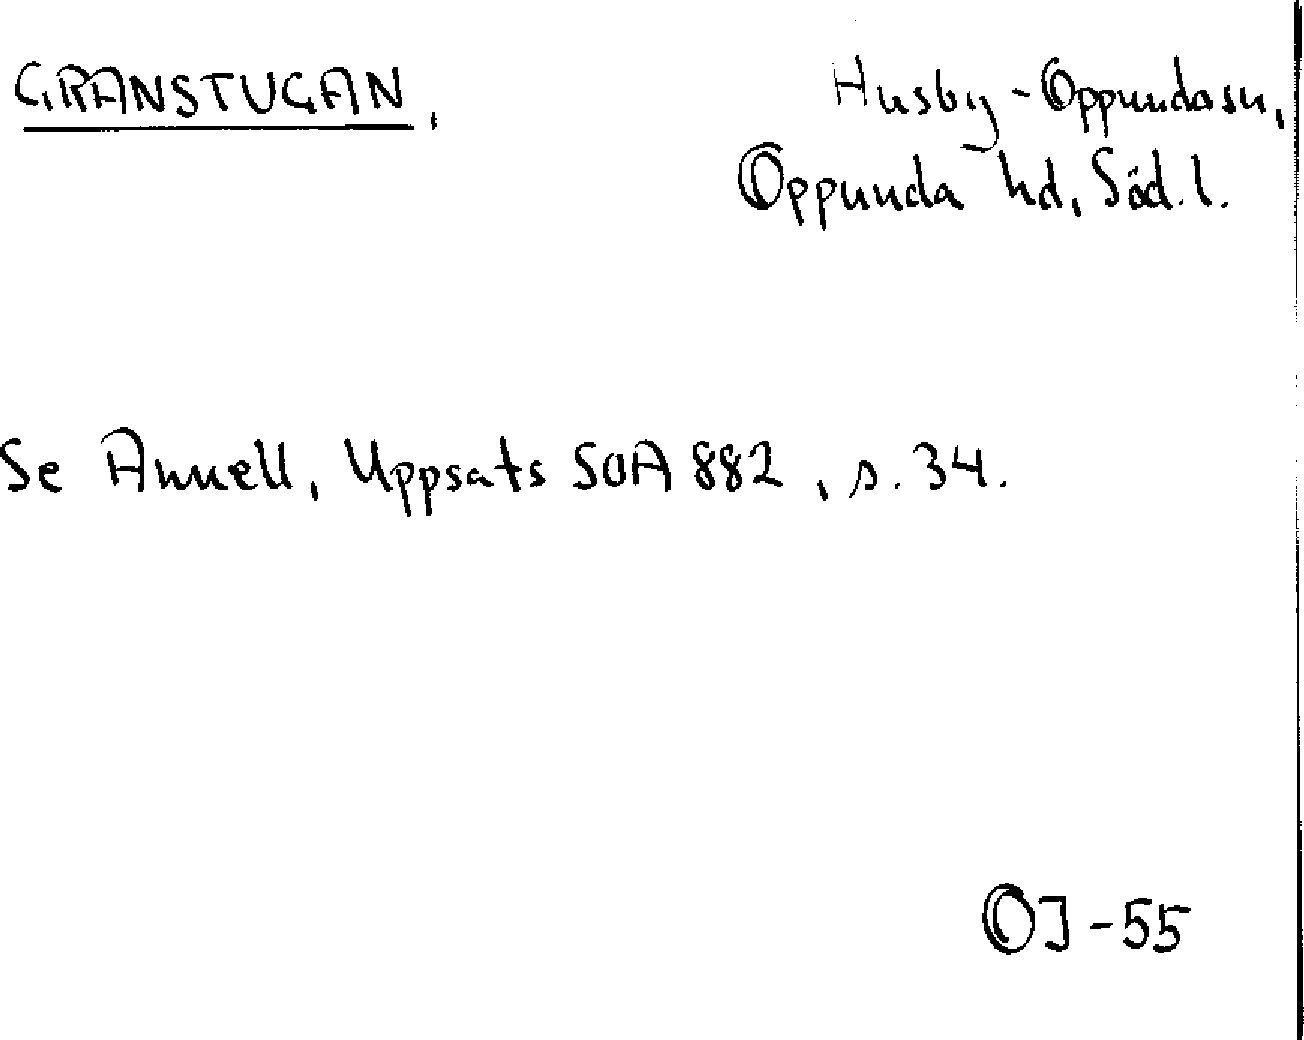 GRANSTUGAN,
Husby-Oppundasn,
Oppunda hd, Söd.l.
Se Annell, Uppsats SOA 882, s. 34.
OJ-55